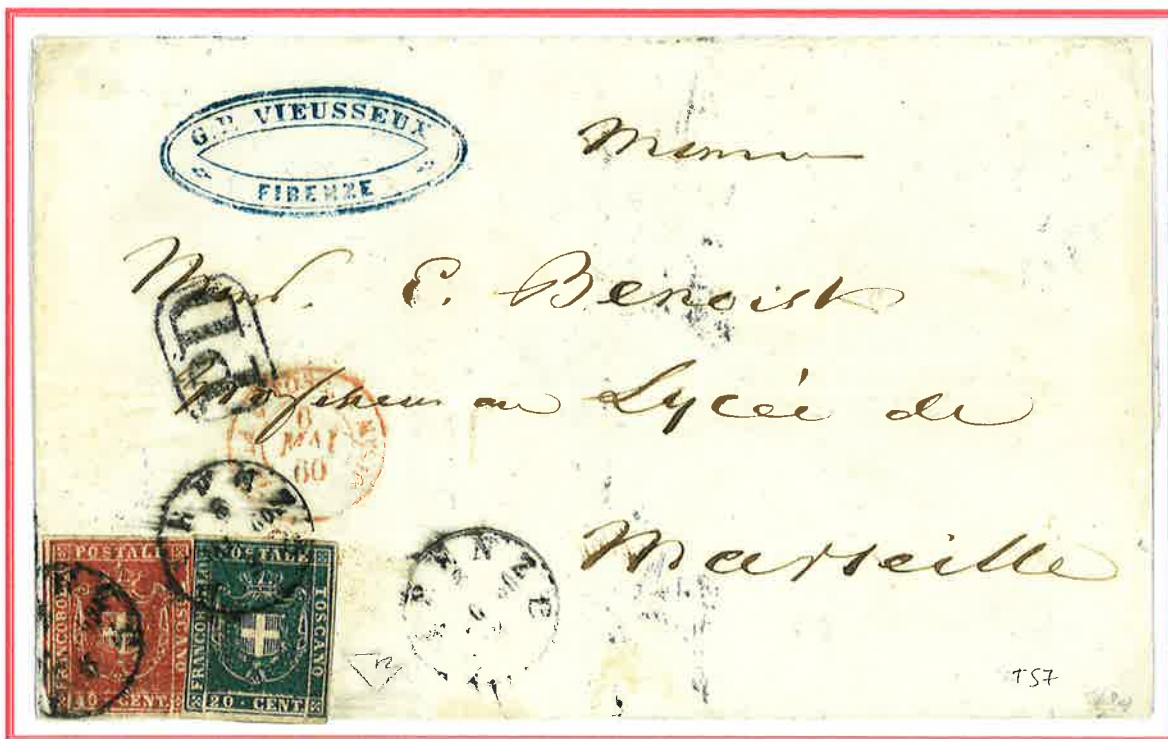 G.P. VIEUSSEUX
FIRENZE
Mons. E. Benoist
Professeur au Lycée de
Marseille
PD
6
MAI
60
FIRENZE
POSTALE
FRANCOBOLLO
TOSCANO
40 CENT
POSTALE
FRANCOBOLLO
TOSCANO
20 CENT
TS7